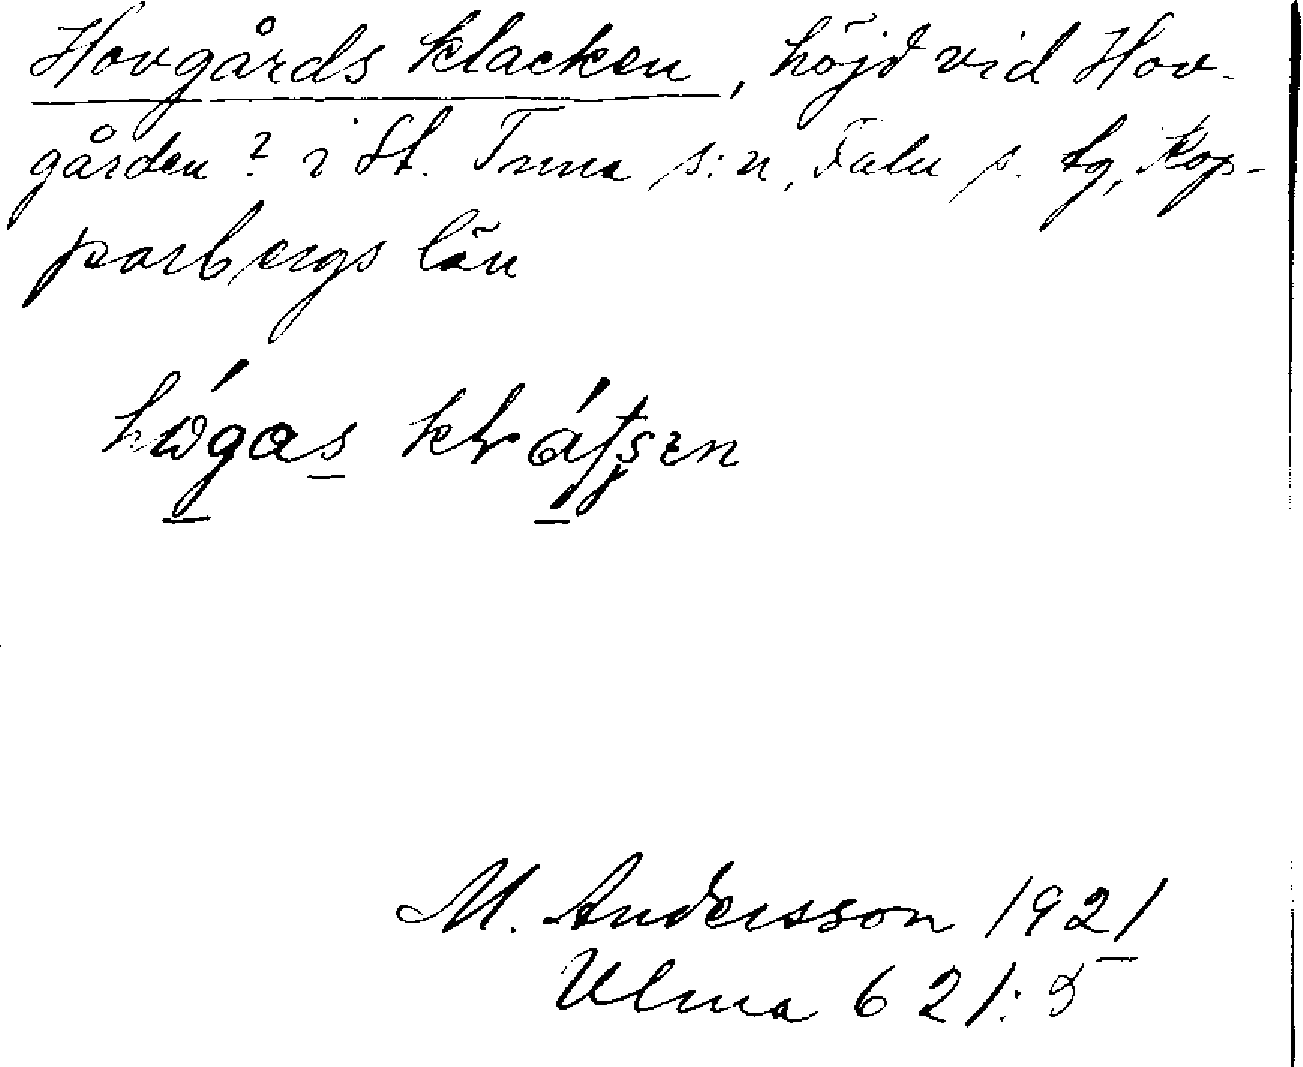 Hovgårds klacken, höjd vid Hov-
gården? i St. Tuna s:n, Falu s. tg, Kop-
parbergs län
M. Andersson 1921
Ulma 621:5